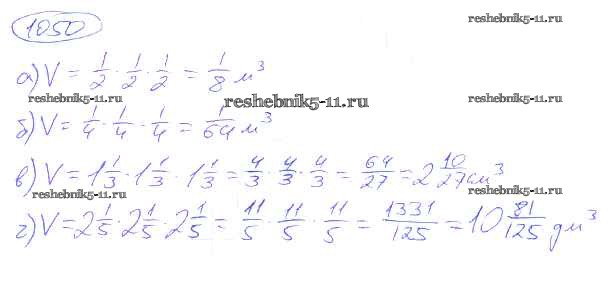 1050
reshebnik5-11.ru
а) V = 1/2 · 1/2 · 1/2 = 1/8 м³
reshebnik5-11.ru reshebnik5-11.ru reshebnik5-11.ru
б) V = 1/4 · 1/4 · 1/4 = 1/64 м³
в) V = 1 1/3 · 1 1/3 · 1 1/3 = 4/3 · 4/3 · 4/3 = 64/27 = 2 10/27 см³
reshebnik5-11.ru reshebnik5-11.ru
г) V = 2 1/5 · 2 1/5 · 2 1/5 = 11/5 · 11/5 · 11/5 = 1331/125 = 10 81/125 дм³
reshebnik5-11.ru